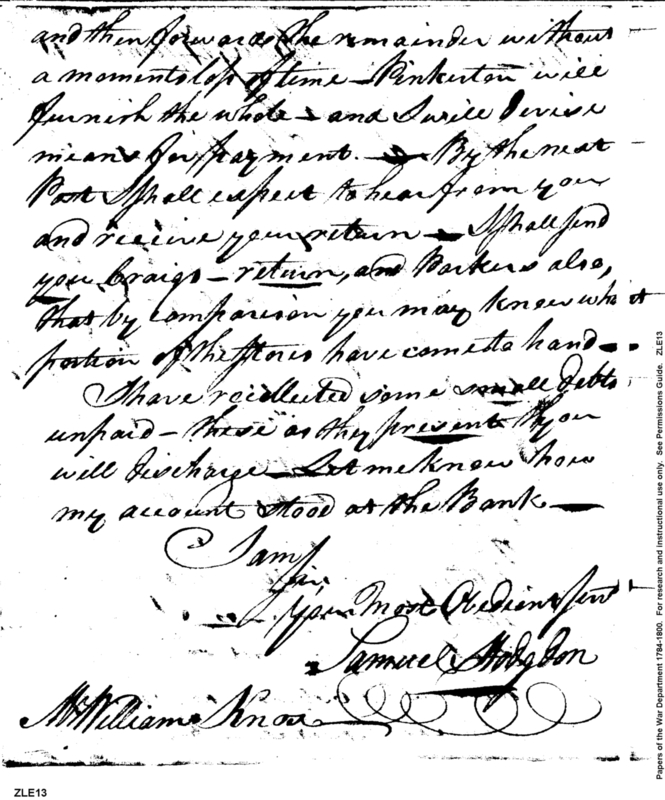 and then forward the remainder without
a moments loss of time — Pinkerton will
furnish the whole — and I will devise
means for payment. — By the next
Post I shall expect to hear from you
and receive your return — I shall send
you Craigs — return, and Parkers also,
that by comparison you may know what
portion of the stores have come to hand —
I have recollected some small debts
unpaid — these as they present you
will discharge — Let me know how
my account stood at the Bank —
I am
Sir,
your Most Obedient Servt
Samuel Hodgdon
Mr William Knox
ZLE13
Papers of the War Department 1784-1800. For research and instructional use only. See Permissions Guide. ZLE13